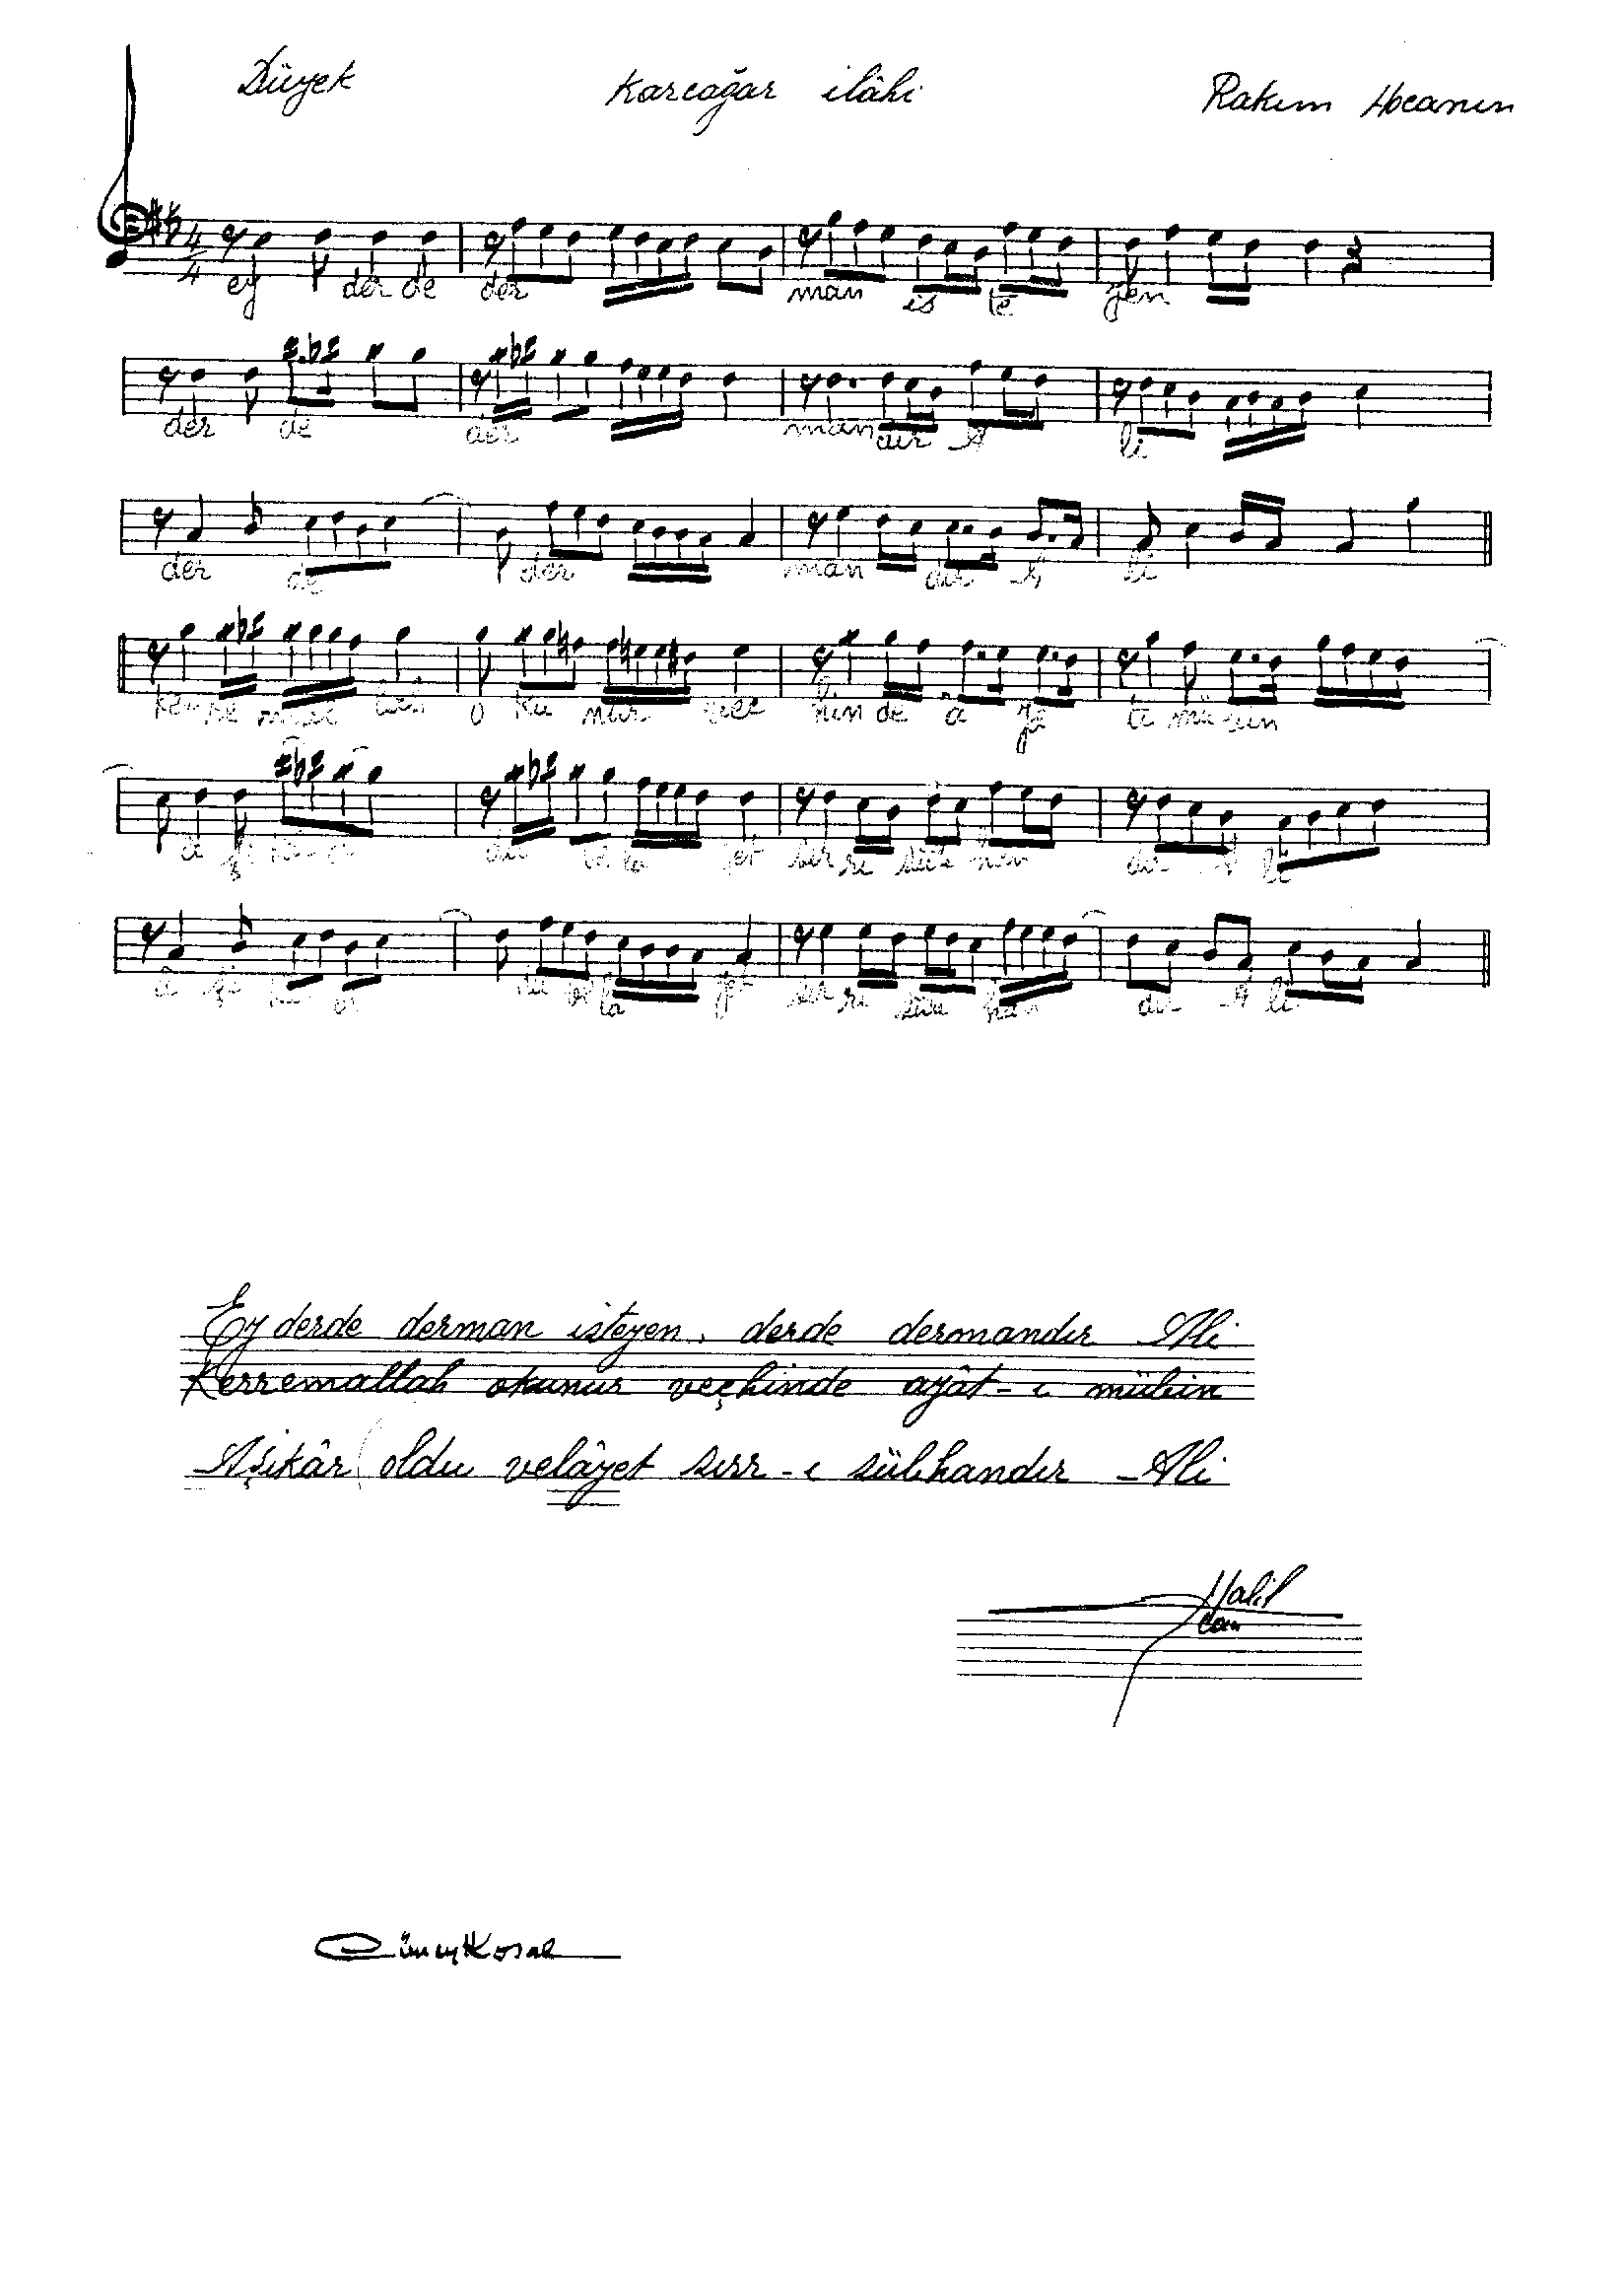 Düyek Karcığar ilâhi Rakım Hocanın
4
4
ey der de der man is te yen
der de der man dır A li
der de der man dır A li
o ku nur vec hin de â yâ tı mü bin
yet sır rı süb han dır A li
la yet sır rı süb han dır A li
Ey derde derman isteyen, derde dermandır Ali
Kerremallah okunur veçhinde ayât-ı mübin
Aşikâr oldu velâyet sırr-ı sübhandır Ali
Halil Can
Cüneyt Kosal